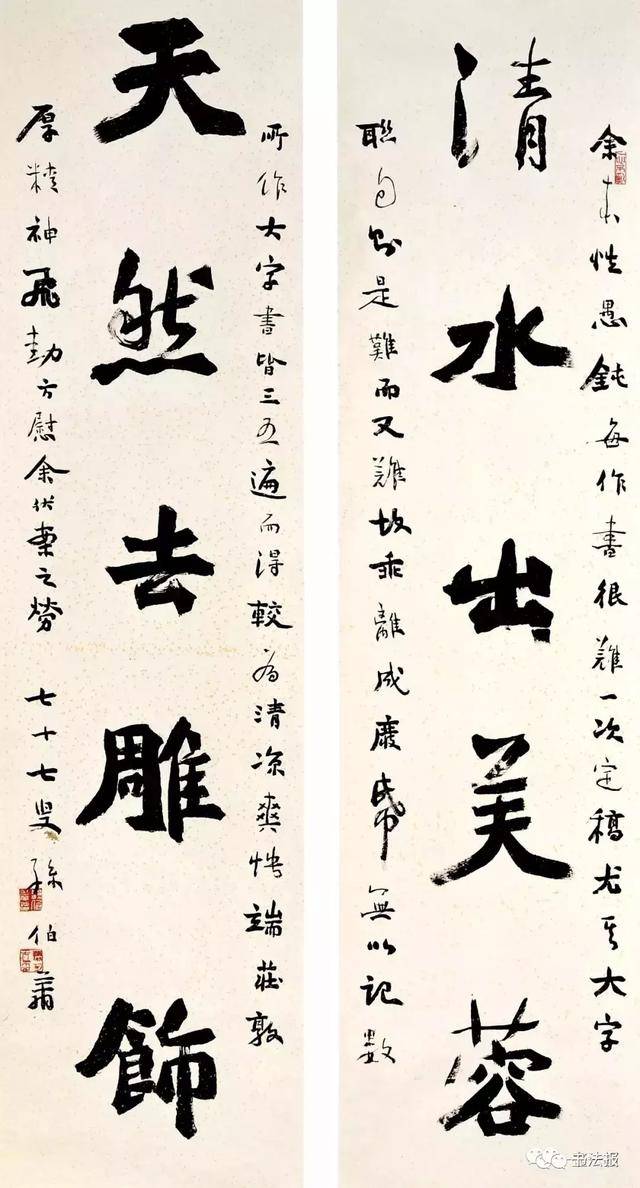 余本性愚鈍每作書很難一次定稿尤其大字
清水出芙蓉
聯句則是難而又難故乖離成廢帋無以記數
所作大字書皆三五遍而得較為清涼爽快端莊敦
天然去雕飾
厚精神飛動方慰余伏案之勞 七十七叟孫伯翔
书法报